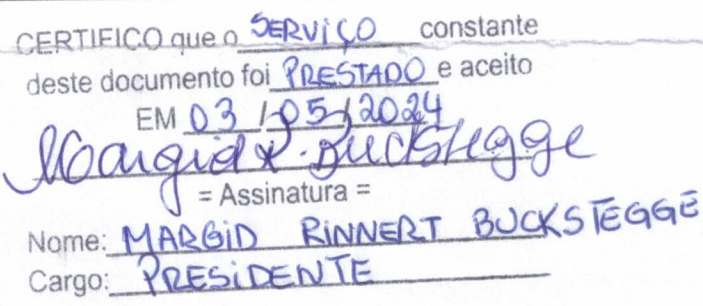 CERTIFICO que o SERVIÇO constante
deste documento foi PRESTADO e aceito
EM 03/05/2024
Margid R. Buckstegge
= Assinatura =
Nome: MARGID RINNERT BUCKSTEGGE
Cargo: PRESIDENTE